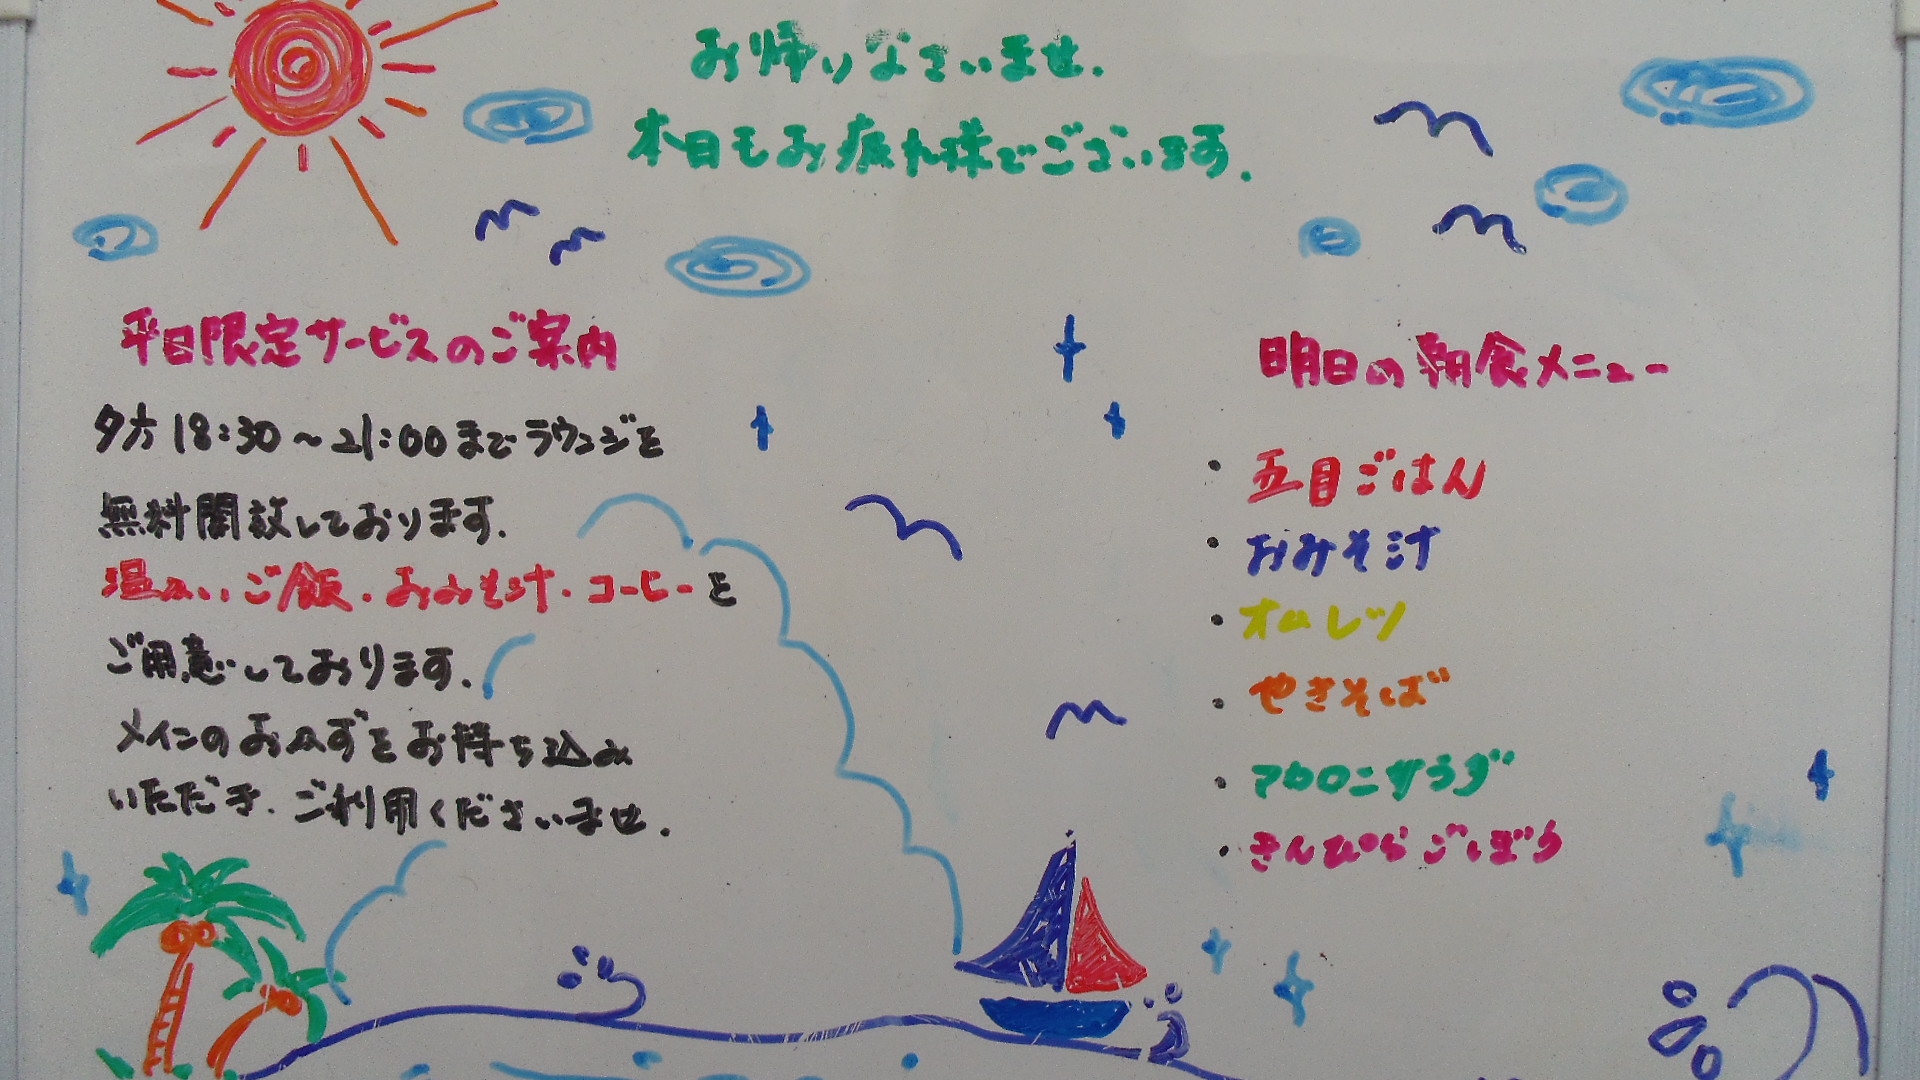 お帰りなさいませ.
本日もお疲れ様でございます.
平日限定サービスのご案内
夕方18:30～21:00までラウンジを
無料開放しております.
温かいご飯・おみそ汁・コーヒーを
ご用意しております.
メインのおかずをお持ち込み
いただき.ご利用くださいませ.
明日の朝食メニュー
・五目ごはん
・おみそ汁
・オムレツ
・やきそば
・マカロニサラダ
・きんぴらごぼう